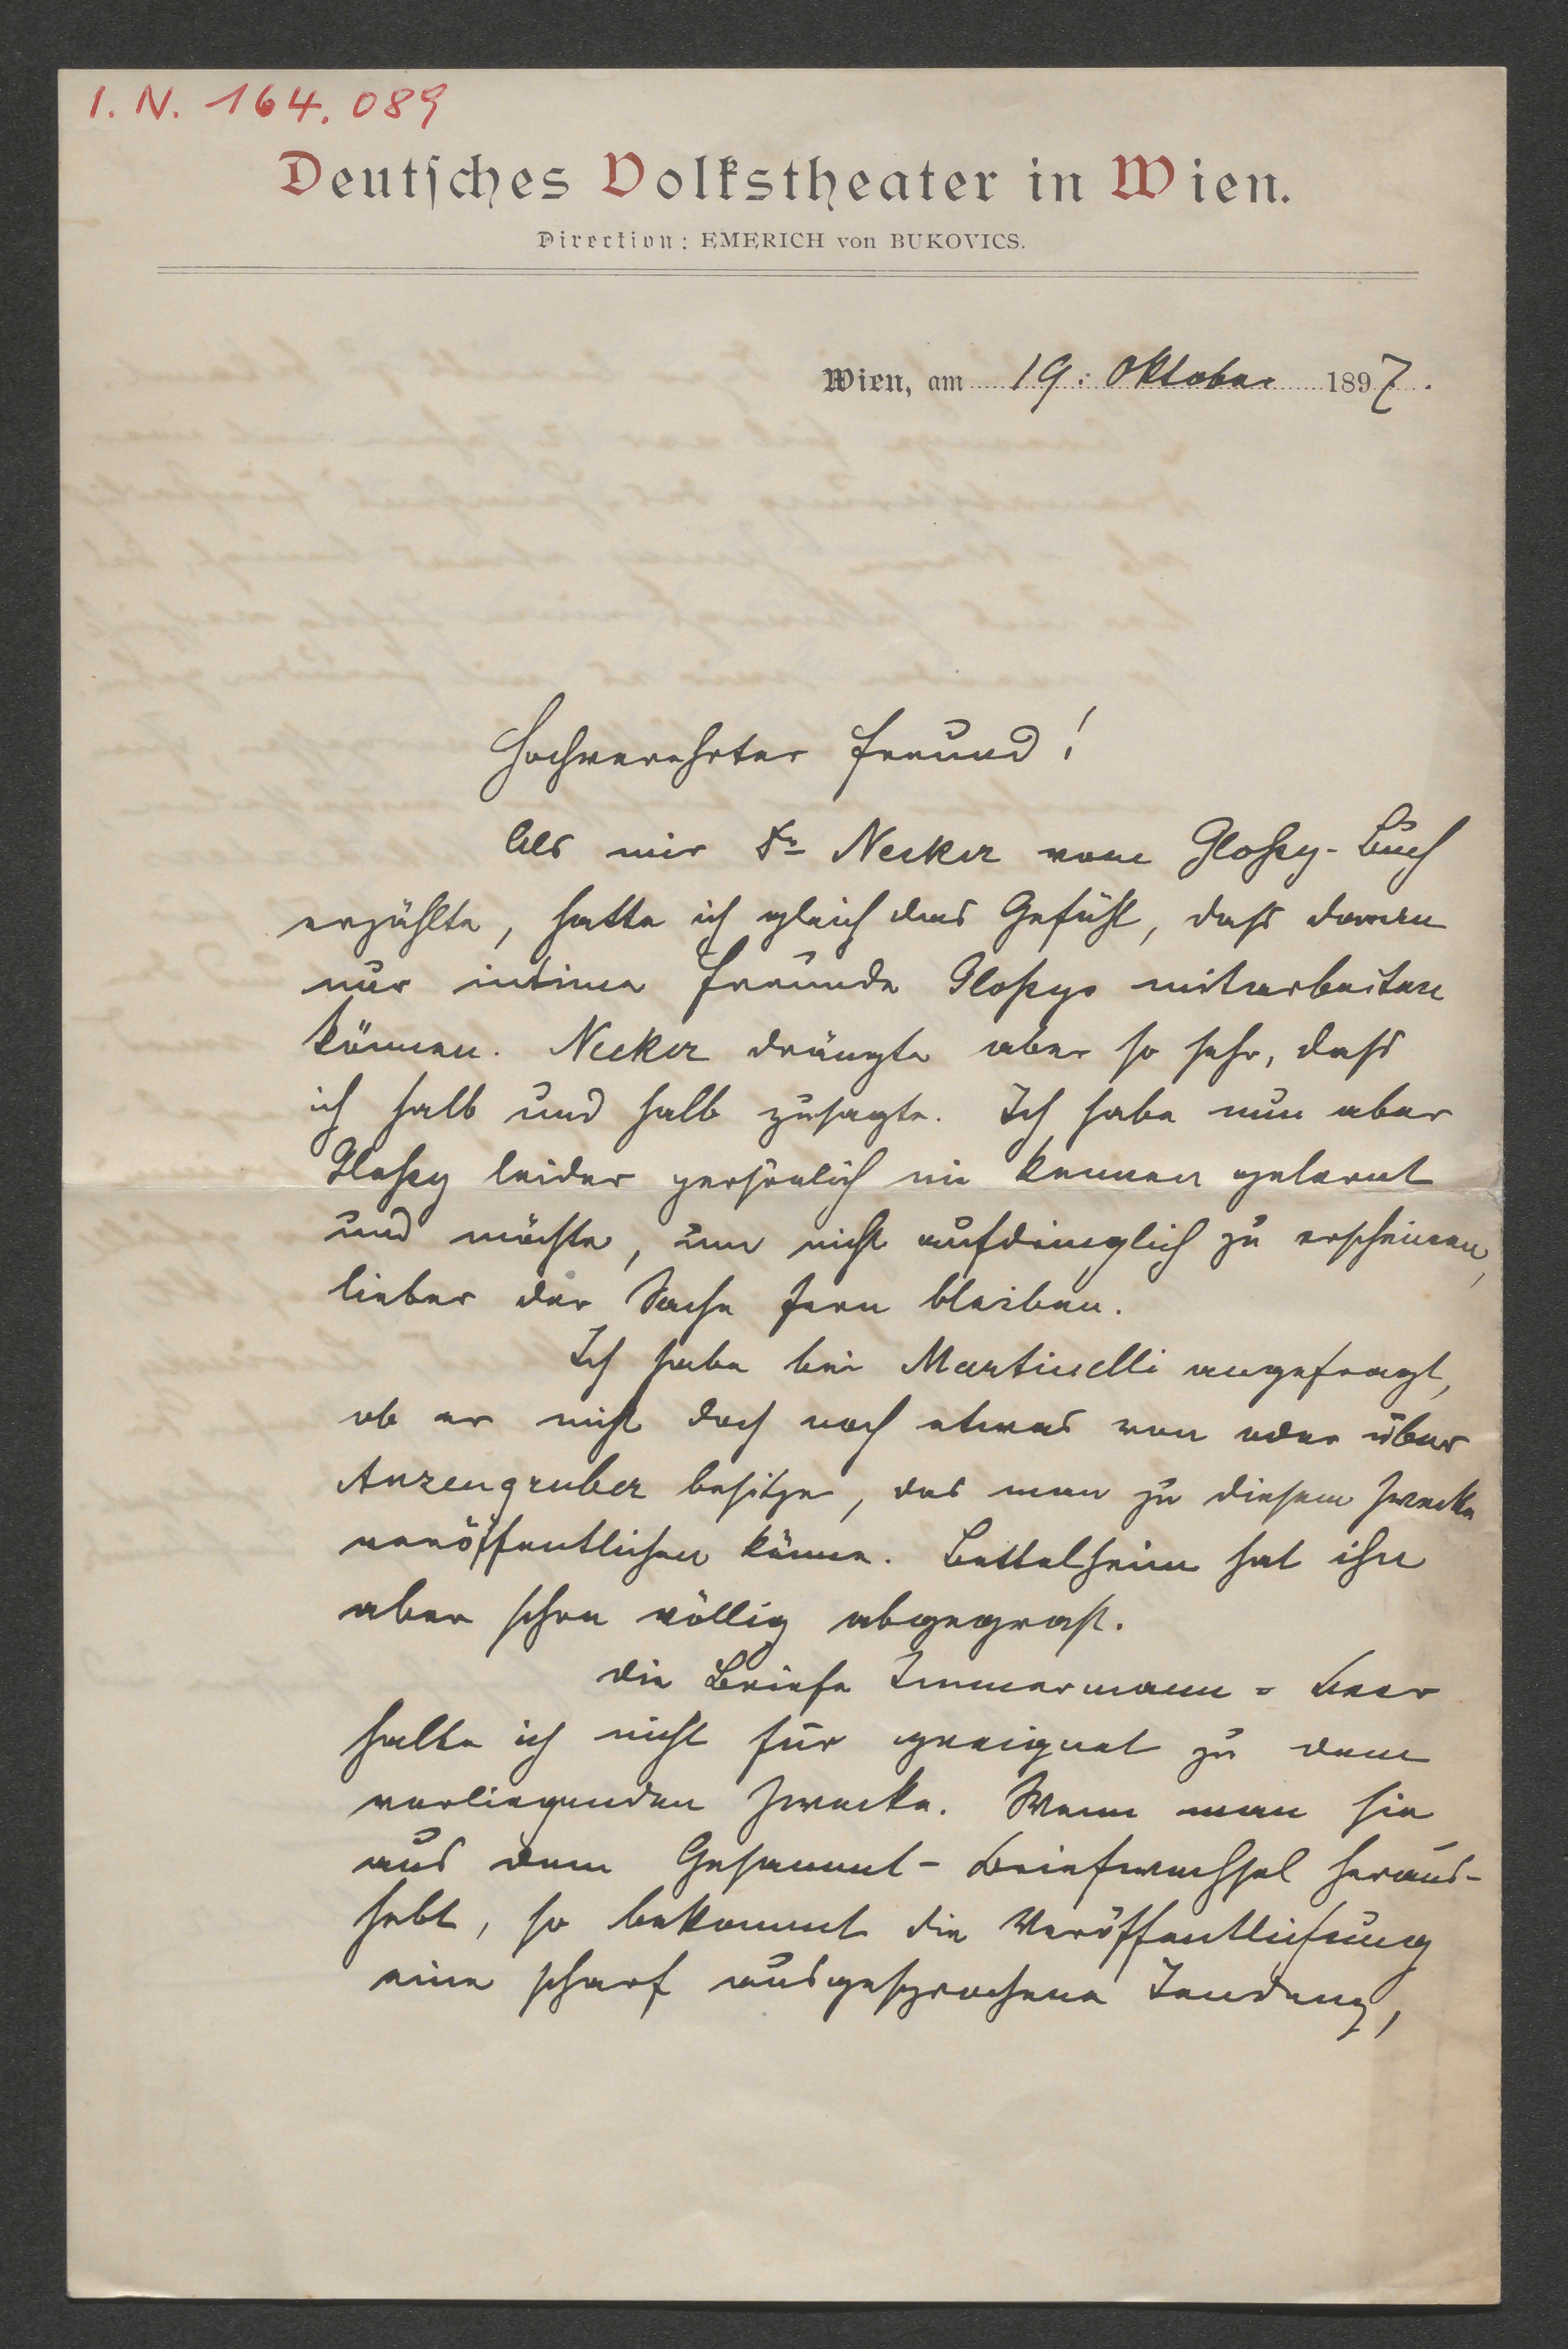 I. N. 164.089
Deutsches Volkstheater in Wien.
Direction: EMERICH von BUKOVICS.
Wien, am 19. Oktober 1897.
Hochverehrter Freund!
Als mir Dr Necker vom Glossy-Buch
erzählte, hatte ich gleich das Gefühl, dass daran
nur intime Freunde Glossys mitarbeiten
können. Necker drängte aber so sehr, dass
ich halb und halb zusagte. Ich habe nun aber
Glossy leider persönlich nie kennen gelernt
und möchte, um nicht aufdringlich zu erscheinen,
lieber der Sache fern bleiben.
Ich habe bei Martinelli angefragt,
ob er nicht doch noch etwas von oder über
Anzengruber besitze, das man zu diesem Zwecke
veröffentlichen könne. Bettelheim hat ihn
aber schon völlig abgegrast.
Die Briefe Immermann-Beer
halte ich nicht für geeignet zu dem
vorliegenden Zwecke. Wenn man sie
aus dem Gesammt-Briefwechsel heraus-
hebt, so bekommt die Veröffentlichung
eine scharf ausgesprochene Tendenz,